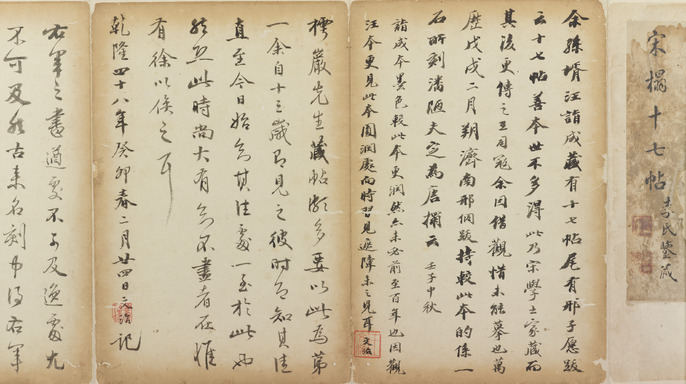 宋搨十七帖
氏鑒藏
余孫壻汪詣成藏有十七帖尾有邢子愿跋
云十七帖善本世不多得此乃宋學士家藏而
其後更傳之王司寇余因借觀惜未能摹也萬
歷戊戌二月朔濟南邢侗跋持較此本的係一
石所刻潘陂夫定為唐搨云 壬子中秋
詣成本墨色較此本更潤然亦未必前至百年也因觀
汪本更見此本圓潤處向時習見遮障未之見耳
文治
樗巖先生藏帖頗多要以此為第
一余自十三歲即見之彼時即知其佳
直至今日始知其佳處一至於此也
然恐此時尚大有知不盡者在惟
有徐以俟之耳
乾隆四十八年癸卯春二月廿四日文治記
右軍之書遒處不可及逸處尤
不可及於古來名刻中得右軍